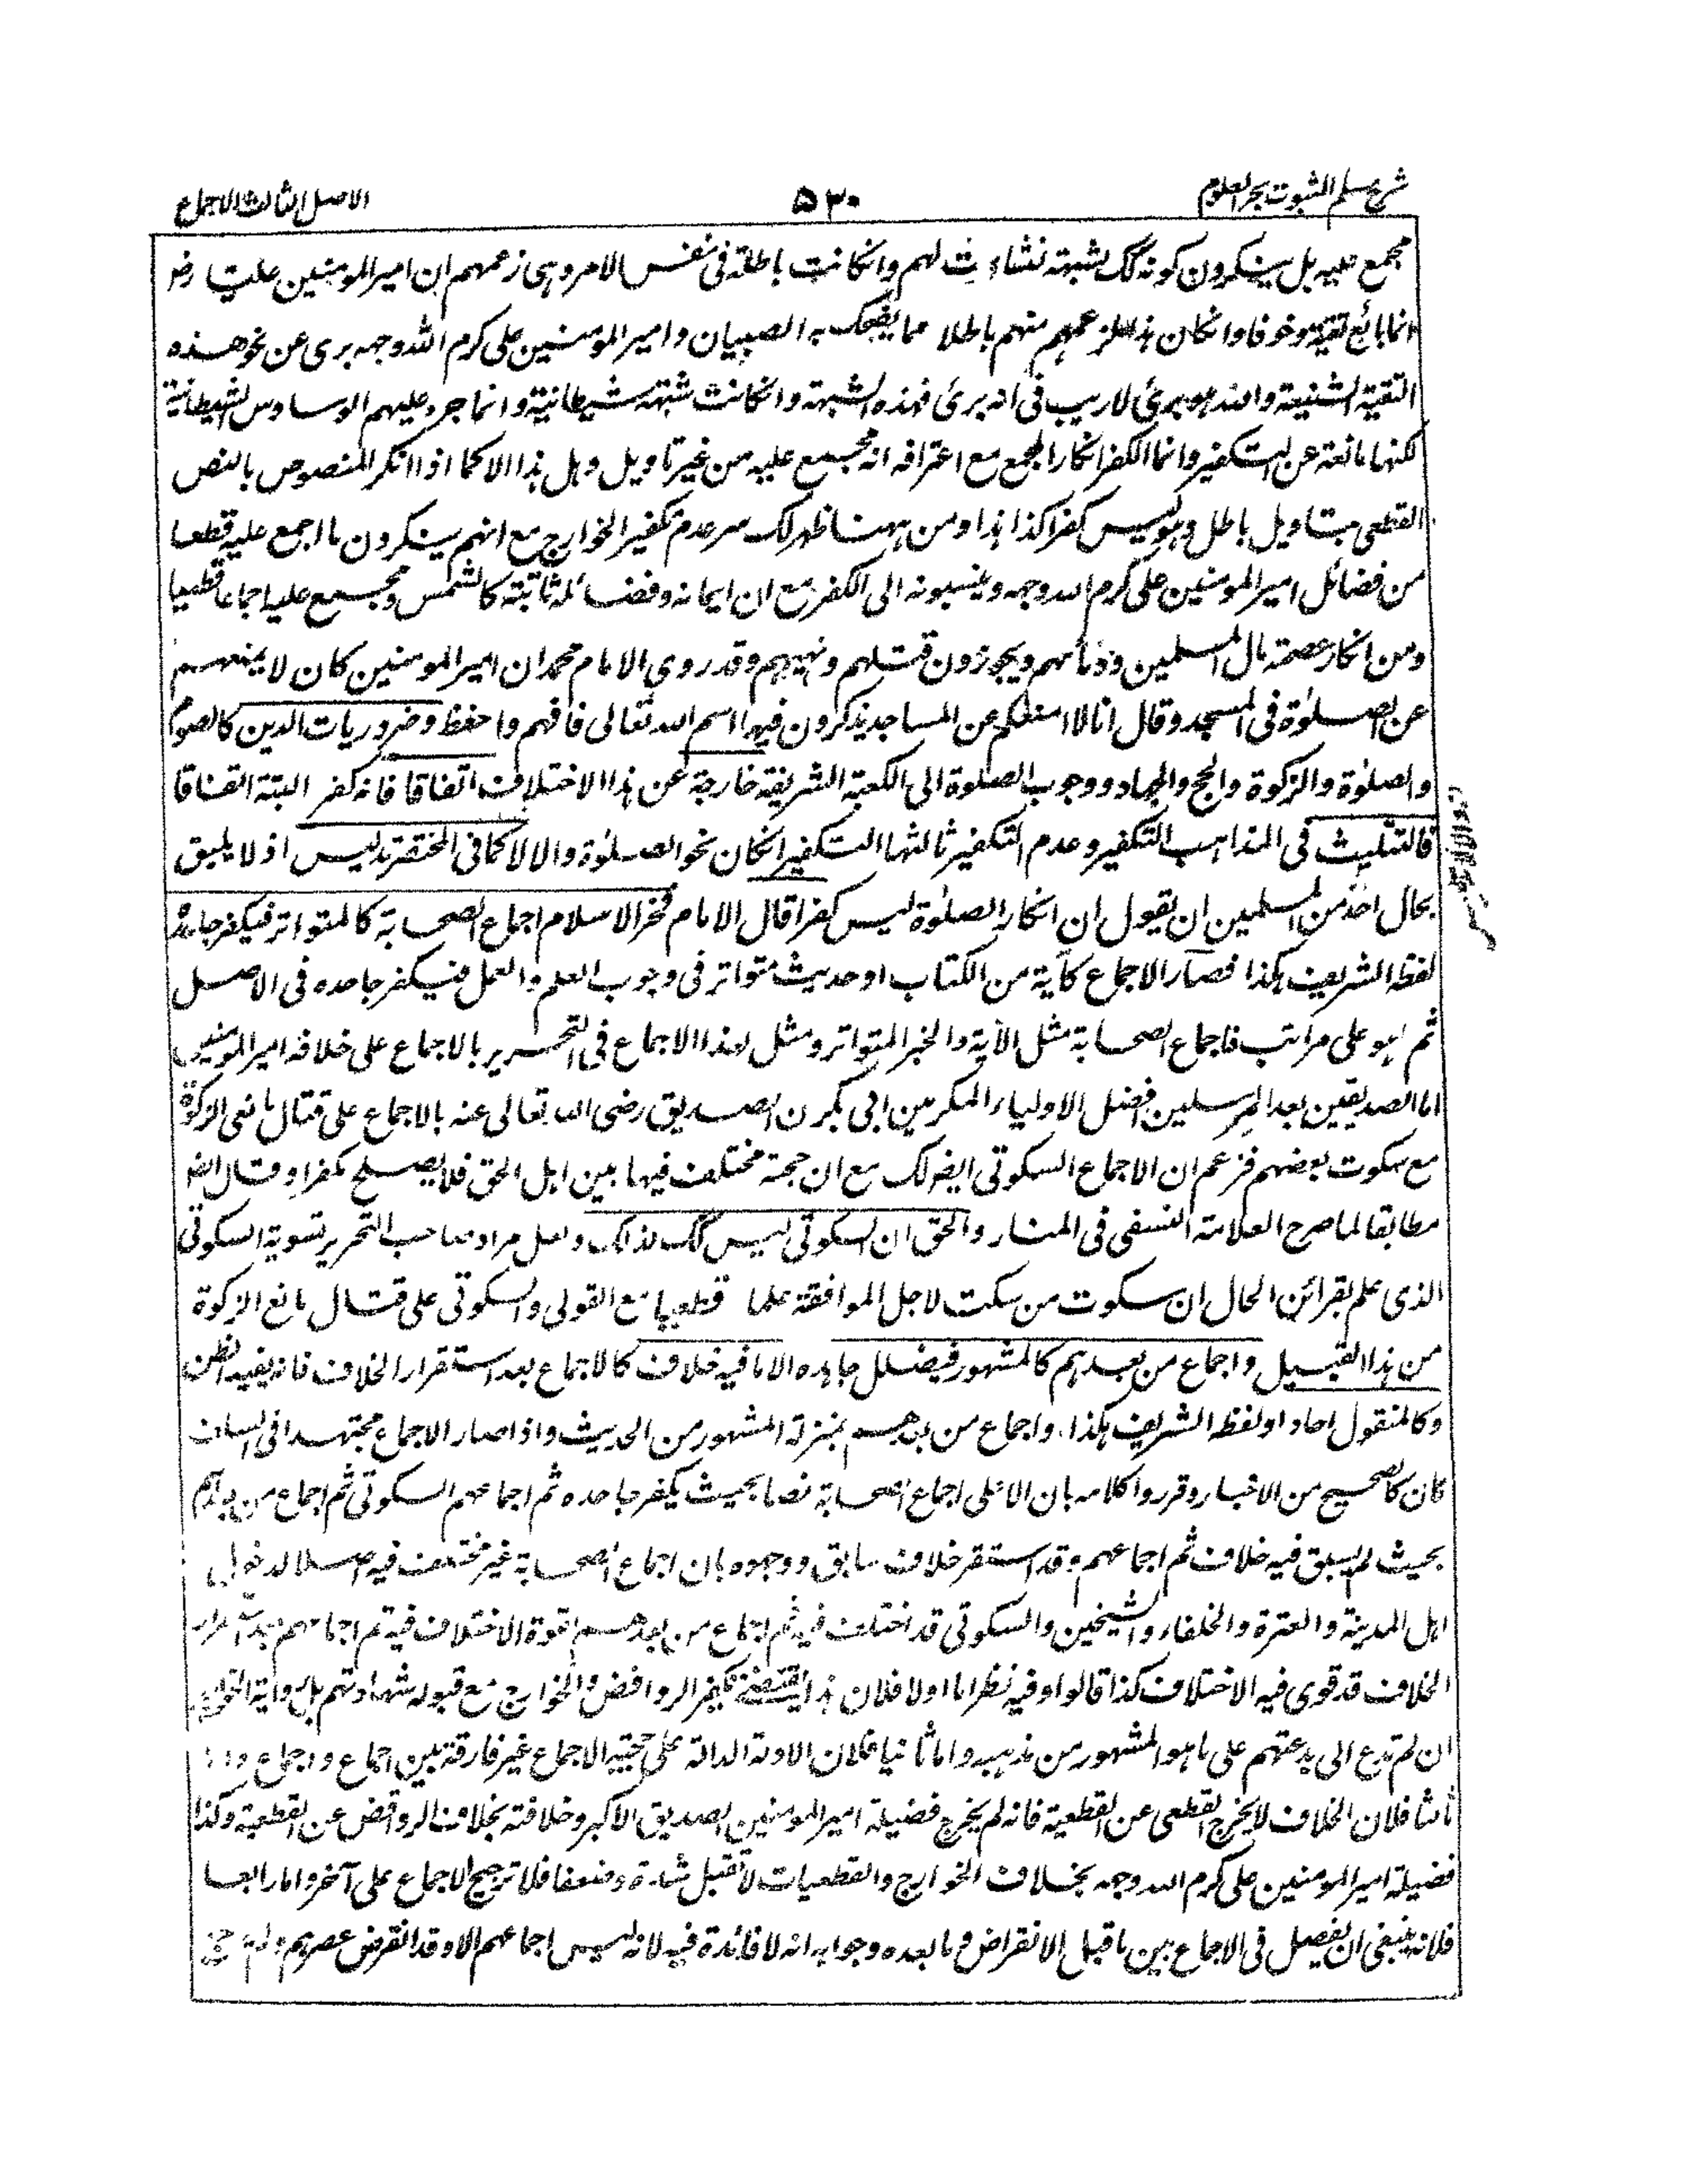 شرح مسلم الثبوت بحر العلوم
٥٣٠
الاصل الثالث الاجماع
مجمع عليه بل ينكرون كونه كك لشبهة نشاءت لهم وانكانت باطلة فى نفس الامر وهى زعمهم ان امير المومنين عليا رضـ
انما بايع تقية وخوفا وانكان هذا الزعم منهم باطلا مما يضحك به الصبيان وامير المؤمنين على كرم الله وجهه برى عن نحو هذه
التقية الشنيعة والله هو برئ لاريب فى انه برئ فهذه الشبهة وانكانت شبهة شيطانية وانما جرد عليهم الوساوس الشيطانية
لكنها مانعة عن التكفير وانما الكفر انكار المجمع مع اعترافه انه مجمع عليه من غير تاويل وهل هذا الا كما اذا انكر المنصوص بالنص
القطعى بتاويل باطل وهو ليس كفرا كذا هذا ومن ههنا ظهر لك سر عدم تكفير الخوارج مع انهم ينكرون ما اجمع عليه قطعا
من فضائل امير المومنين على كرم الله وجهه وينسبونه الى الكفر مع ان ايمانه وفضائله ثابتة كالشمس ومجمع عليه اجماعا قطعيا
ومن انكار عصمة مال المسلمين ودمائهم ويجوزون قتلهم ونهبهم وقد روى الامام محمد ان امير المومنين كان لا يمنعهم
عن الصلوة فى المسجد وقال انا لا امنعكم عن المساجد يذكرون فيها اسم الله تعالى فافهم واحفظ وضروريات الدين كالصوم
والصلوة والزكوة والحج والجهاد ووجوب الصلوة الى الكعبة الشريفة خارجة عن هذا الاختلاف اتفاقا فانه كفر البتة اتفاقا
فالتثليث فى المذاهب التكفير وعدم التكفير ثالثها التكفير انكان نحو الصلوة والا لا كما فى المختصر تدليس اذ لا يليق
بحال احد من المسلمين ان يقول ان انكار الصلوة ليس كفرا قال الامام فخر الاسلام اجماع الصحابة كالمتواتر فيكفر جاحده
لفظه الشريف هكذا فصار الاجماع كآية من الكتاب او حديث متواتر فى وجوب العلم والعمل فيكفر جاحده فى الاصل
ثم هو على مراتب فاجماع الصحابة مثل الآية والخبر المتواتر ومثل لهذا الاجماع فى التحرير بالاجماع على خلافة امير المومنين
امام الصديقين بعد المرسلين افضل الاولياء المكرمين ابى بكرن الصديق رضى الله تعالى عنه بالاجماع على قتال مانعى الزكوة
مع سكوت بعضهم فزعم ان الاجماع السكوتى ايضا كك مع ان حجة مختلف فيها بين اهل الحق فلا يصلح مكفرا وقال ايضـ
مطابقا لما صرح العلامة النسفى فى المنار والحق ان السكوتى ليس كك لذلك ولعل مراد صاحب التحرير تسوية السكوتى
الذى علم بقرائن الحال ان سكوت من سكت لاجل الموافقة علما قطعيا مع القولى والسكوتى على قتال مانع الزكوة
من هذا القبيل واجماع من بعدهم كالمشهور فيضلل جاحده الا ما فيه خلاف كالاجماع بعد استقرار الخلاف فانه يفيد الظن
وكالمنقول احادا ولفظه الشريف هكذا واجماع من بعدهم بمنزلة المشهور من الحديث واذا صار الاجماع مجتهدا فى السلف
كان كالصحيح من الاخبار وقرروا كلامه بان الاعلى اجماع الصحابة نصا بحيث يكفر جاحده ثم اجماعهم السكوتى ثم اجماع من بعدهم
بحيث لم يسبق فيه خلاف ثم اجماعهم وقد استقر خلاف سابق ووجوه بان اجماع الصحابة غير مختلف فيه اصلا لدخول
اهل المدينة والعترة والخلفاء والشيخين والسكوتى قد اختلف فيه ثم اجماع من بعدهم لقوة الاختلاف فيه ثم اجماعهم بعد استقرار
الخلاف قد قوى فيه الاختلاف كذا قالوا وفيه نظر اما اولا فلان هذا يقتضى تكفير الروافض والخوارج مع قبوله شهادتهم بل رواية الخوارج
ان لم تدع الى بدعتهم على ما هو المشهور من مذهبه واما ثانيا فلان الادلة الدالة على حجية الاجماع غير فارقة بين اجماع واجماع واما
ثالثا فلان الخلاف لا يخرج القطعى عن القطعية فانه لم يخرج فضيلة امير المومنين الصديق الاكبر وخلافته بخلاف الروافض عن القطعية وكذا
فضيلة امير المومنين على كرم الله وجهه بخلاف الخوارج والقطعيات لا تقبل شدة وضعفا فلا ترجيح لاجماع على آخر واما رابعا
فلانه ينبغى ان يفصل فى الاجماع بين ما قبل الانقراض وما بعده وجوابه انه لا فائدة فيه لانه ليس اجماعهم الا وقد انقرض عصرهم